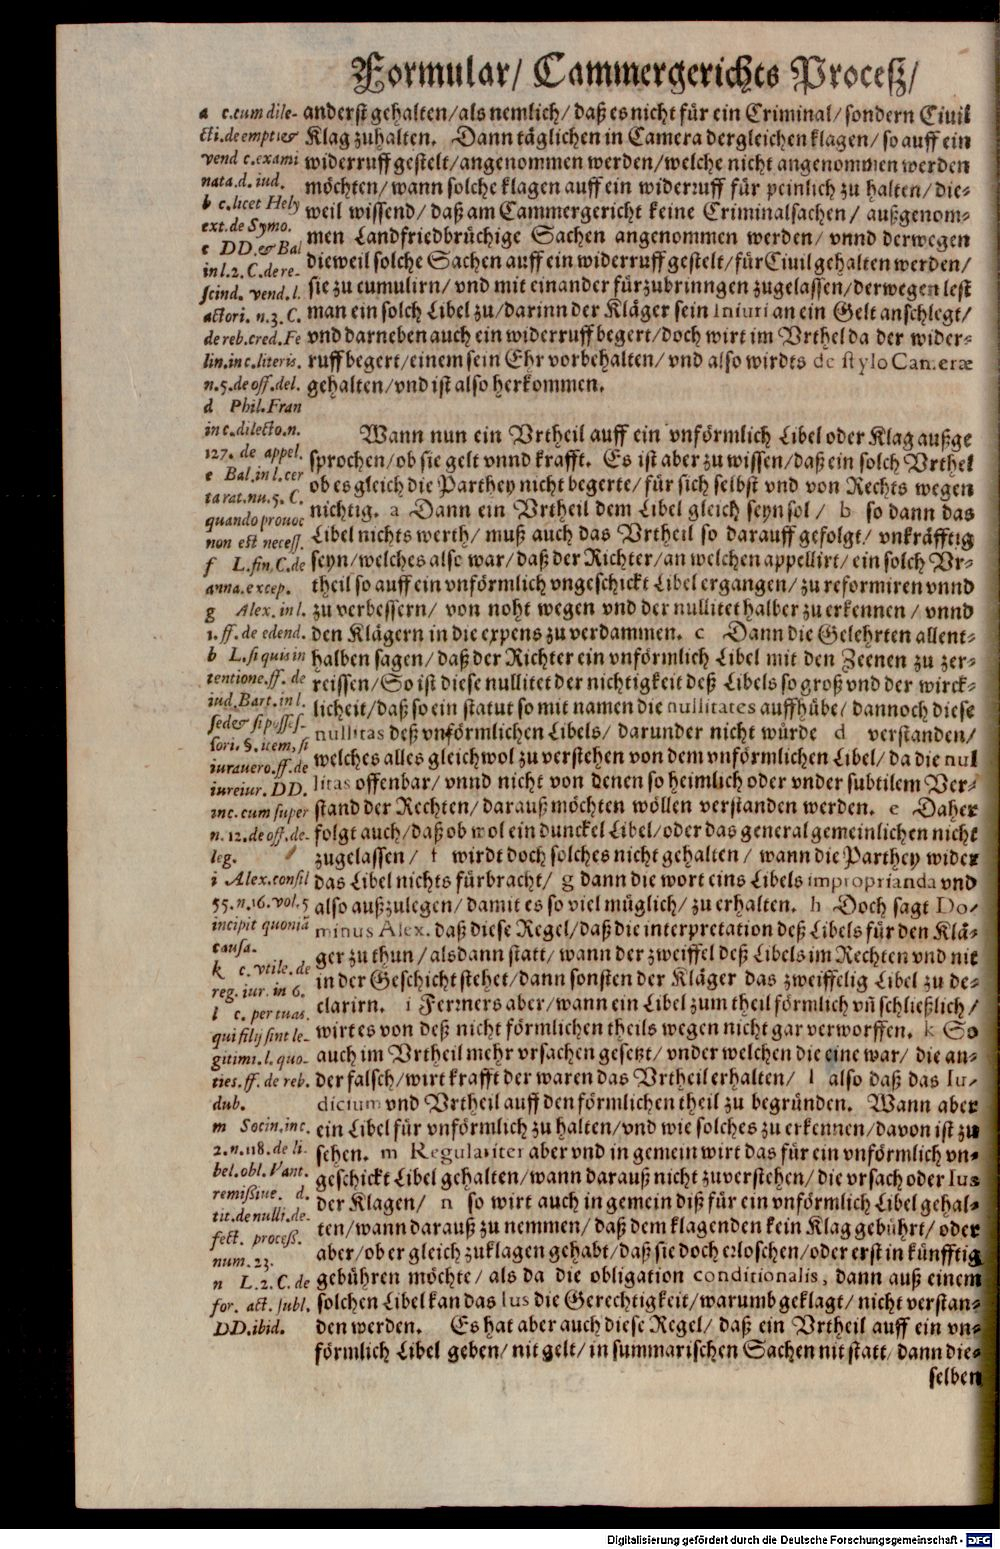 Formular/ Cammergerichts Proceß/
a c. cum dile-
cti. de empt. &
vend c. exami
nata. d. iud.
b c. licet Hely
ext. de Symo.
c DD. & Bal
in l. 2. C. de re-
scind. vend. l.
actori. n. 3. C.
de reb. cred. Fe
lin. in c. literis.
n. 5. de off. del.
d Phil. Fran
in c. dilecto. n.
127. de appel.
e Bal. in l. cer
ta rat. nu. 5. C.
quando prouoc
non est necess.
f L. fin. C. de
anna. excep.
g Alex. in l.
1. ff. de edend.
h L. si quis in
tentione. ff. de
iud. Bart. in l.
sed & si possef-
sori. §. item, si
iurauero. ff. de
iureiur. DD.
in c. cum super
n. 12. de off. de-
leg.
i Alex. consil
55. n. 16. vol. 5
incipit quoniã
causa.
k c. vtile. de
reg. iur. in 6.
l c. per tuas.
qui filij sint le-
gitimi. l. quo-
ties. ff. de reb.
dub.
m Socin. in c.
2. n. 118. de li-
bel. obl. Vant.
remißiue. d.
tit. de nulli. de-
fect. proceß.
num. 23.
n L. 2. C. de
for. act. subl.
DD. ibid.
anderst gehalten/ als nemlich/ daß es nicht für ein Criminal/ sondern Ciuil
Klag zuhalten. Dann täglichen in Camera dergleichen klagen/ so auff ein
widerruff gestelt/ angenommen werden/ welche nicht angenommen werden
möchten/ wann solche klagen auff ein widerruff für peinlich zu halten/ die-
weil wissend/ daß am Cammergericht keine Criminalsachen/ außgenom-
men Landfriedbrüchige Sachen angenommen werden/ vnnd derwegen
dieweil solche Sachen auff ein widerruff gestelt/ für Ciuil gehalten werden/
sie zu cumulirn/ vnd mit einander fürzubrinngen zugelassen/ derwegen lest
man ein solch Libel zu/ darinn der Kläger sein Iniurian ein Gelt anschlegt/
vnd darneben auch ein widerruff begert/ doch wirt im Vrthel da der wider-
ruff begert/ einem sein Ehr vorbehalten/ vnd also wirdts de stylo Cameræ
gehalten/ vnd ist also herkommen.
Wann nun ein Vrtheil auff ein vnförmlich Libel oder Klag außge
sprochen/ ob sie gelt vnnd krafft. Es ist aber zu wissen/ daß ein solch Vrthel
ob es gleich die Parthey nicht begerte/ für sich selbst vnd von Rechts wegen
nichtig. a Dann ein Vrtheil dem Libel gleich seyn sol/ b so dann das
Libel nichts werth/ muß auch das Vrtheil so darauff gefolgt/ vnkräfftig
seyn/ welches also war/ daß der Richter/ an welchen appellirt/ ein solch Vr-
theil so auff ein vnförmlich vngeschickt Libel ergangen/ zu reformiren vnnd
zu verbessern/ von noht wegen vnd der nullitet halber zu erkennen/ vnnd
den Klägern in die expens zu verdammen. c Dann die Gelehrten allent-
halben sagen/ daß der Richter ein vnförmlich Libel mit den Zeenen zu zer-
reissen/ So ist diese nullitet der nichtigkeit deß Libels so groß vnd der wirck-
licheit/ daß so ein statut so mit namen die nullitates auffhübe/ dannoch diese
nullitas deß vnförmlichen Libels/ darunder nicht würde d verstanden/
welches alles gleichwol zu verstehen von dem vnförmlichen Libel/ da die nul
litas offenbar/ vnnd nicht von denen so heimlich oder vnder subtilem Ver-
stand der Rechten/ darauß möchten wöllen verstanden werden. e Daher
folgt auch/ daß ob wol ein dunckel Libel/ oder das general gemeinlichen nicht
zugelassen/ f wirdt doch solches nicht gehalten/ wann die Parthey wider
das Libel nichts fürbracht/ g dann die wort eins Libels improprianda vnd
also außzulegen/ damit es so viel müglich/ zu erhalten. h Doch sagt Do-
minus Alex. daß diese Regel/ daß die interpretation deß Libels für den Klä-
ger zu thun/ alsdann statt/ wann der zweiffel deß Libels im Rechten vnd nit
in der Geschicht stehet/ dann sonsten der Kläger das zweiffelig Libel zu de-
clarirn. i Fermers aber/ wann ein Libel zum theil förmlich vñ schließlich/
wirt es von deß nicht förmlichen theils wegen nicht gar verworffen. k So
auch im Vrtheil mehr vrsachen gesetzt/ vnder welchen die eine war/ die an-
der falsch/ wirt krafft der waren das Vrtheil erhalten/ l also daß das Iu-
dicium vnd Vrtheil auff den förmlichen theil zu begründen. Wann aber
ein Libel für vnförmlich zu halten/ vnd wie solches zu erkennen/ davon ist zu
sehen. m Regulariter aber vnd in gemein wirt das für ein vnförmlich vn-
geschickt Libel gehalten/ wann darauß nicht zuverstehen/ die vrsach oder Ius
der Klagen/ n so wirt auch in gemein diß für ein vnförmlich Libel gehal-
ten/ wann darauß zu nemmen/ daß dem klagenden kein Klag gebührt/ oder
aber/ ob er gleich zuklagen gehabt/ daß sie doch erloschen/ oder erst in künfftig
gebühren möchte/ als da die obligation conditionalis, dann auß einem
solchen Libel kan das Ius die Gerechtigkeit/ warumb geklagt/ nicht verstan-
den werden. Es hat aber auch diese Regel/ daß ein Vrtheil auff ein vn-
förmlich Libel geben/ nit gelt/ in summarischen Sachen nit statt/ dann die-
selben
Digitalisierung gefördert durch die Deutsche Forschungsgemeinschaft - DFG